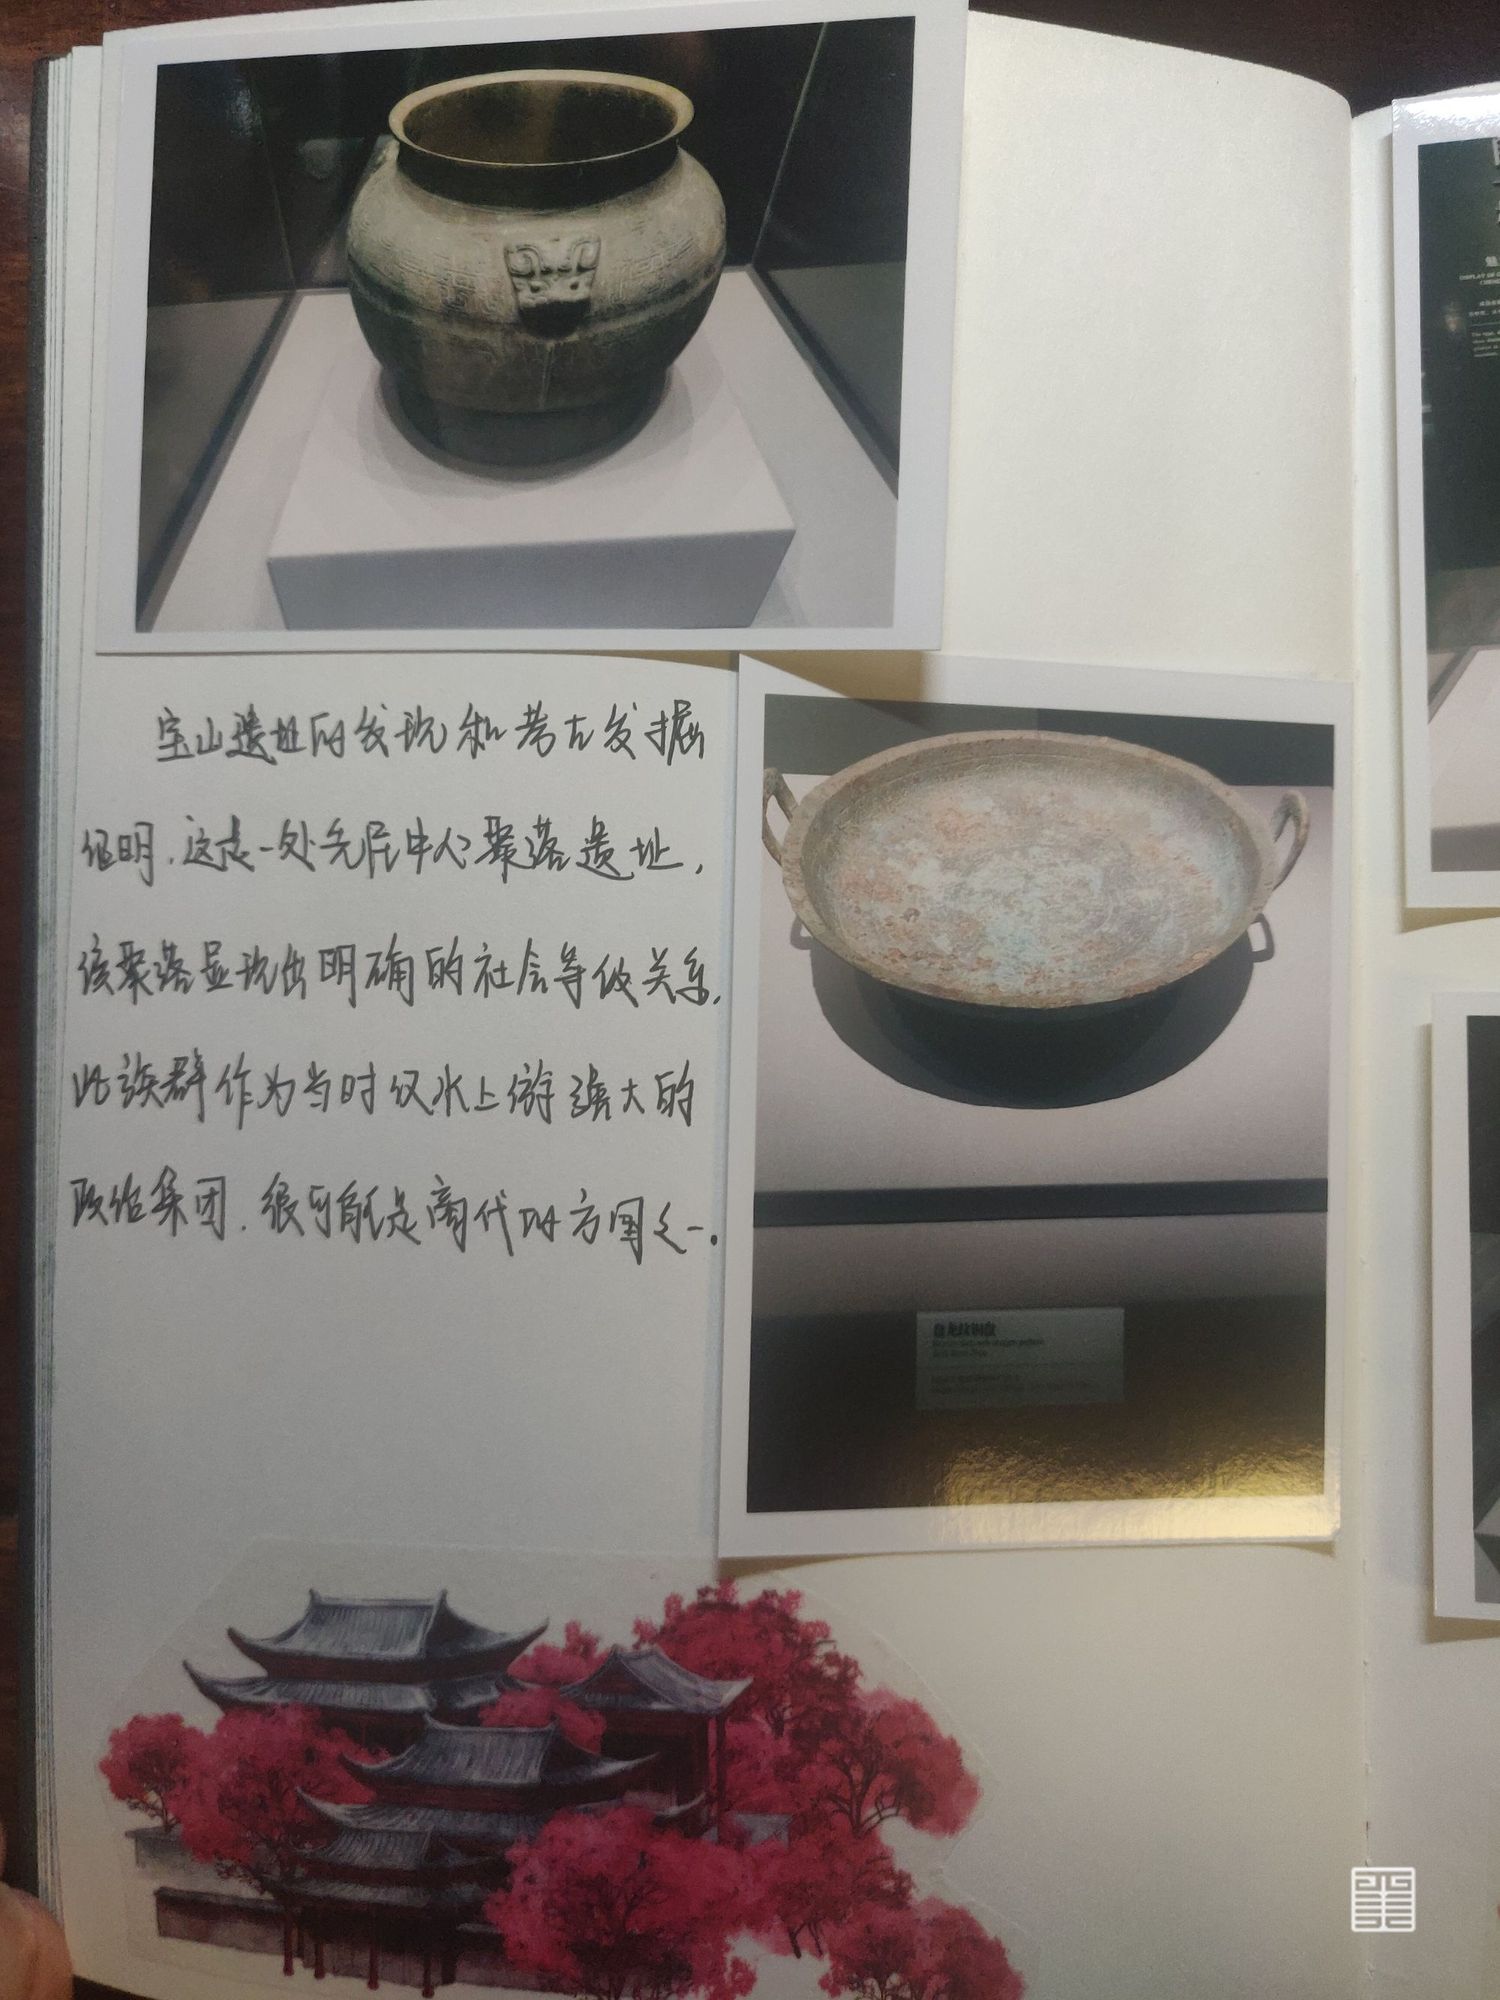 宝山遗址的发现和考古发掘
证明,这是一处先民中心聚落遗址,
该聚落显现出明确的社会等级关系,
此族群作为当时汉水上游强大的
政治集团,很可能是商代时方国之一。
盘龙纹铜盘